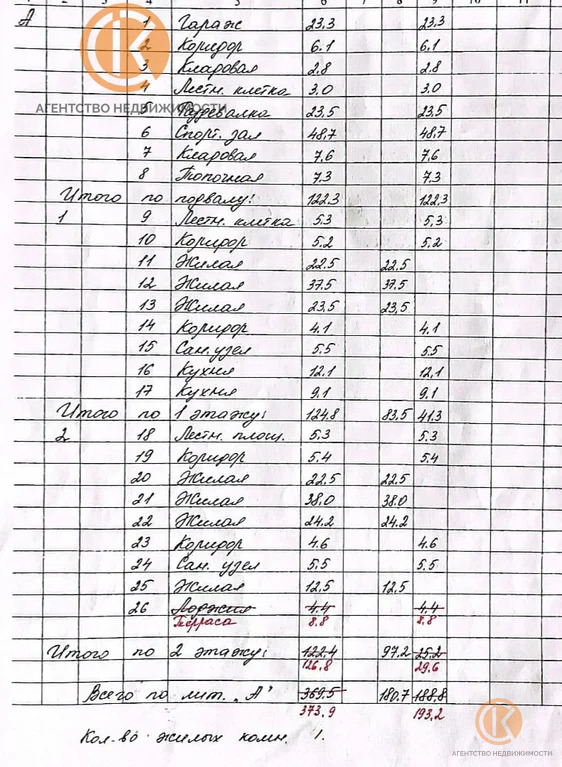 А 1 Гараж 23,3 23,3
2 Коридор 6,1 6,1
3 Кладовая 2.8 2.8
4 Лестн. клетка 3.0 3.0
АГЕНТСТВО НЕДВИЖИМОСТИ
5 Раздевалка 23,5 23,5
6 Спорт. зал 48,7 48,7
7 Кладовая 7,6 7,6
8 Топочная 7,3 7,3
Итого по подвалу: 122,3 122,3
1 9 Лестн. клетка 5.3 5,3
10 Коридор 5.2 5.2
11 Жилая 22,5 22,5
12 Жилая 37.5 37.5
13 Жилая 23,5 23,5
14 Коридор 4.1 4.1
15 Сан. узел 5.5 5.5
16 Кухня 12,1 12,1
17 Кухня 9,1 9,1
Итого по 1 этажу: 124,8 83,5 41,3
2 18 Лестн. площ. 5.3 5.3
19 Коридор 5.4 5.4
20 Жилая 22,5 22,5
21 Жилая 38.0 38.0
22 Жилая 24.2 24.2
23 Коридор 4.6 4.6
24 Сан. узел 5.5 5.5
25 Жилая 12,5 12,5
26 Лоджия 4.4 4.4
Терраса 8.8 8.8
Итого по 2 этажу: 122,4 97.2 25.2
126,8 29,6
Всего по лит. „А" 369,5 180,7 188,8
373,9 193,2
Кол-во жилых комн. 1.
АГЕНТСТВО НЕДВИЖИМОСТИ